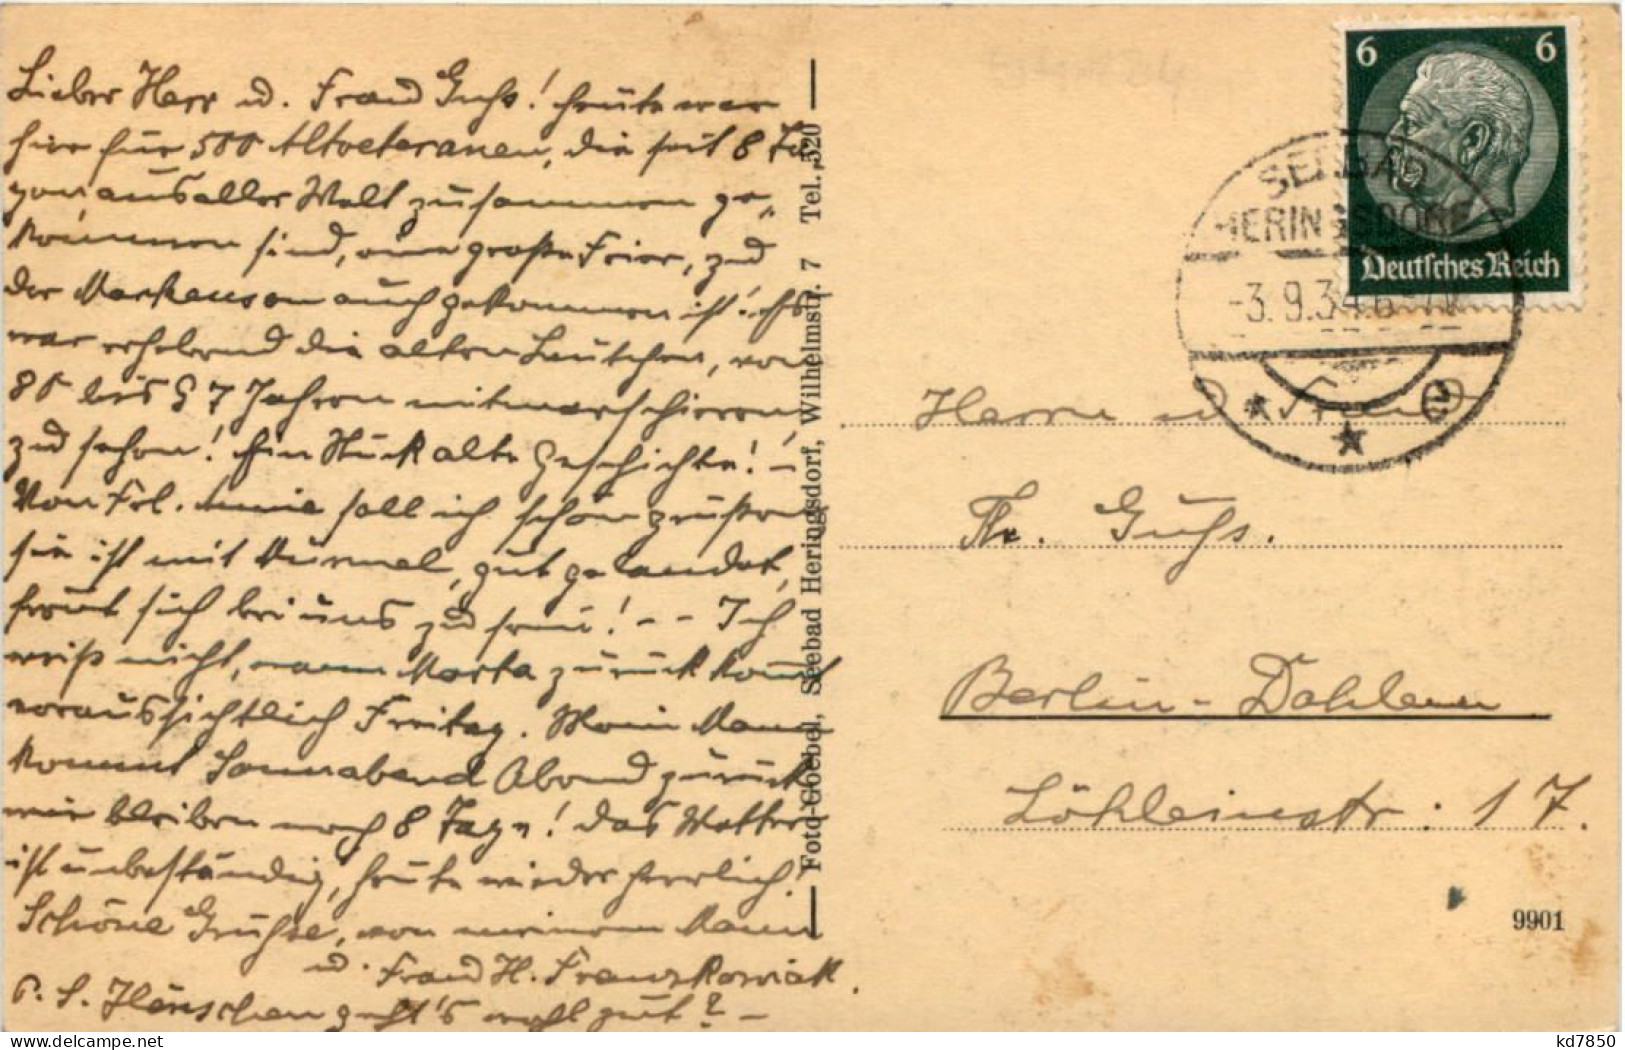 Lieber Herr u. Frau Guhs! Heute war
hier für 500 Altveteranen, die seit 8 Ta-
gen aus aller Welt zusammen ge-
kommen sind, eine große Feier, zu
der Mackensen auch gekommen ist! Es
war erhebend die alten Leutchen, von
80 bis 97 Jahren mitmarschieren
zu sehen! Ein Stück alte Geschichte! –
Von Frl. soll ich schön grüßen
sie ist mit gut gelandet,
freut sich bei uns zu sein! – – Ich
weiß nicht, wann Marta zurück kommt
voraussichtlich Freitag. Mein Mann
kommt Sonnabend Abend zurück
wir bleiben noch 8 Tage! Das Wetter
ist unbeständig, heute wieder herrlich!
Schöne Grüße, von meinem Mann
u. Frau H. Franzkowiak.
P. S. Hänschen geht's wohl gut? –
Foto-Goebel, Seebad Heringsdorf, Wilhelmstr. 7 Tel. 520
6 6
Deutsches Reich
SEEBAD
HERINGSDORF
-3.9.34.
Herrn u Frau
Fr. Guhs.
Berlin-Dahlem
Löhleinstr: 17.
9901
kd7850